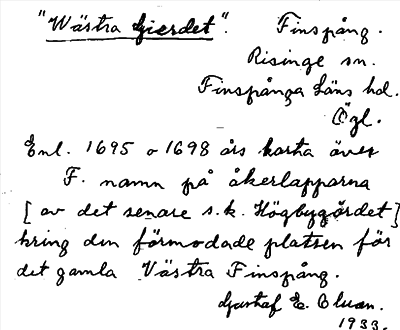 "Wästra Gierdet". Finspång.
Risinge sn.
Finspånga Läns hd.
Ögl.
Enl. 1695 o 1698 års karta över
F. namn på åkerlapparna
[av det senare s.k. Högbygärdet]
kring den förmodade platsen för
det gamla Västra Finspång.
Gustaf E.
1933.